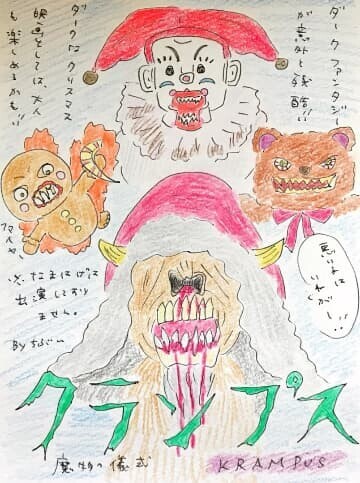 ダークファンタジー
が意外と残酷!!
ダークなクリスマス
映画としては、大人
も楽しめるかも!!
ファイヤー、
悪い子は
いねがー!!
※なまはげは
出演しており
ません。
By
クランプス
魔物の儀式
KRAMPUS